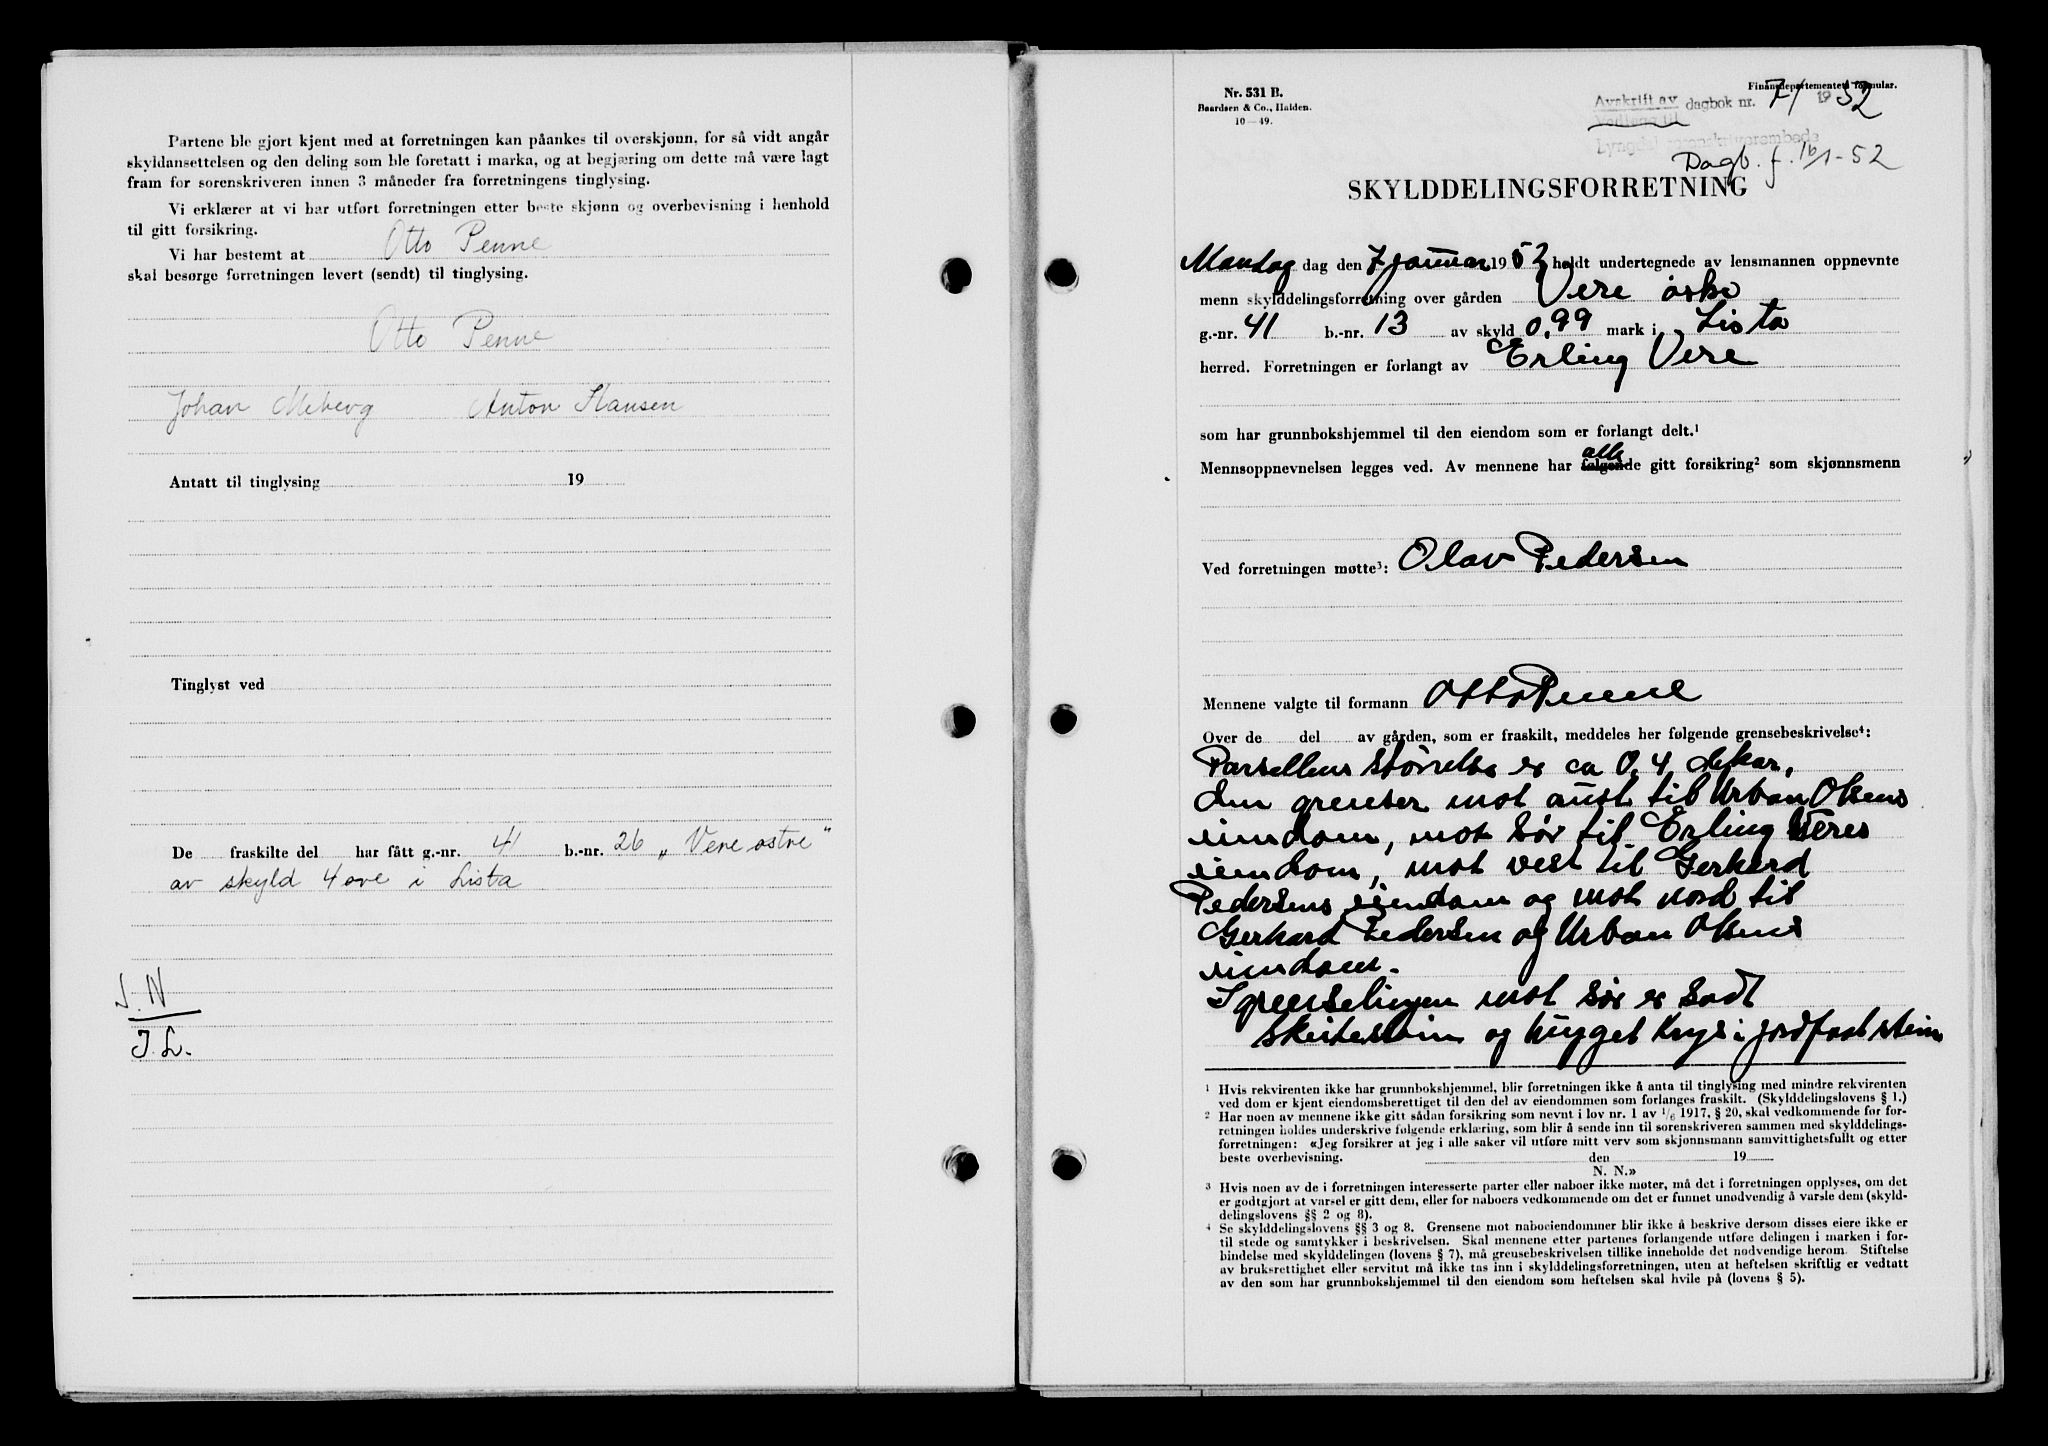 Partene ble gjort kjent med at forretningen kan påankes til overskjønn, for så vidt angår
skyldansettelsen og den deling som ble foretatt i marka, og at begjæring om dette må være lagt
fram for sorenskriveren innen 3 måneder fra forretningens tinglysing.
Vi erklærer at vi har utført forretningen etter beste skjønn og overbevisning i henhold
til gitt forsikring.
Vi har bestemt at Otto Penne
skal besørge forretningen levert (sendt) til tinglysing.
Otto Penne
Johan Meberg Anton Hansen
Antatt til tinglysing 19
Tinglyst ved
De fraskilte del har fått g.-nr. 41 b.-nr. 26 „Vere østre"
av skyld 4 øre i Lista
S. N
J. L.
Nr. 531 B.
Baardsen & Co., Halden.
10—49.
Finansdepartementets formular.
Avskrift av dagbok nr. 71 1952
Vedlegg til
Lyngdal sorenskriverembede
Dagb. f. 16/1-52
SKYLDDELINGSFORRETNING
Mandag dag den 7 januar 1952 holdt undertegnede av lensmannen oppnevnte
menn skylddelingsforretning over gården Vere
g.-nr. 41 b.-nr. 13 av skyld 0,99 mark i Lista
herred. Forretningen er forlangt av Erling Vere
som har grunnbokshjemmel til den eiendom som er forlangt delt.¹
alle
Mennsoppnevnelsen legges ved. Av mennene har følgende gitt forsikring² som skjønnsmenn
Ved forretningen møtte³: Olav Pedersen
Mennene valgte til formann Otto Penne
Over de del av gården, som er fraskilt, meddeles her følgende grensebeskrivelse⁴:
Parsellens størrelse er ca 0,4 dekar,
den grenser mot aust til Urban Olsens
eiendom, mot sør til Erling Veres
eiendom, mot vest til Gerhard
Pedersens eiendom og mot nord til
Gerhard Pedersen og Urban Olsens
eiendom.
I grenselinjen mot sør er sadt
skeitestein og hugget krys i jordfast stein
¹ Hvis rekvirenten ikke har grunnbokshjemmel, blir forretningen ikke å anta til tinglysing med mindre rekvirenten
ved dom er kjent eiendomsberettiget til den del av eiendommen som forlanges fraskilt. (Skylddelingslovens § 1.)
² Har noen av mennene ikke gitt sådan forsikring som nevnt i lov nr. 1 av 1/6 1917, § 20, skal vedkommende før for-
retningen holdes underskrive følgende erklæring, som blir å sende inn til sorenskriveren sammen med skylddelings-
forretningen: «Jeg forsikrer at jeg i alle saker vil utføre mitt verv som skjønnsmann samvittighetsfullt og etter
beste overbevisning. den 19
N. N.»
³ Hvis noen av de i forretningen interesserte parter eller naboer ikke møter, må det i forretningen opplyses, om det
er godtgjort at varsel er gitt dem, eller for naboers vedkommende om det er funnet unødvendig å varsle dem (skyld-
delingslovens §§ 2 og 8).
⁴ Se skylddelingslovens §§ 3 og 8. Grensene mot naboeiendommer blir ikke å beskrive dersom disses eiere ikke er
til stede og samtykker i beskrivelsen. Skal mennene etter partenes forlangende utføre delingen i marken i for-
bindelse med skylddelingen (lovens § 7), må grensebeskrivelsen tillike inneholde det nødvendige herom. Stiftelse
av bruksrettighet eller servitut må ikke tas inn i skylddelingsforretningen, uten at heftelsen skriftlig er vedtatt
av den som har grunnbokshjemmel til den eiendom som heftelsen skal hvile på (lovens § 5).